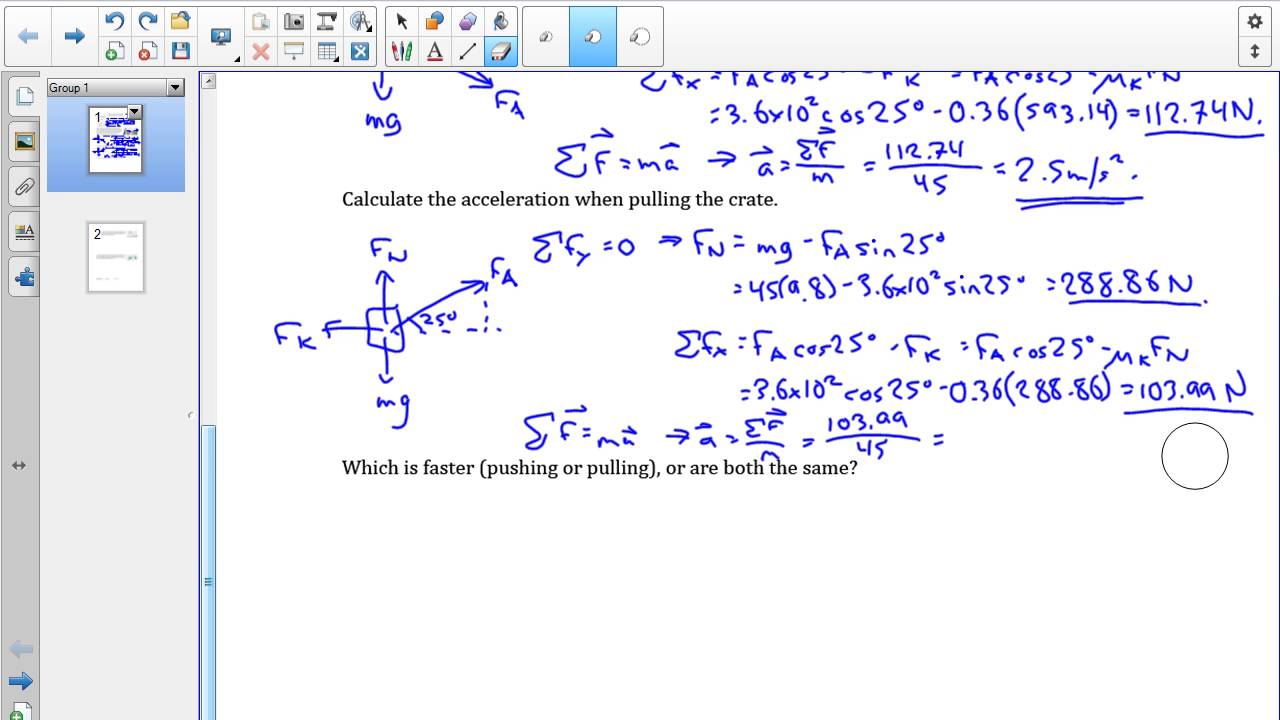 Group 1
1
2
mg
F_A
ΣF_x = F_A cos25° - F_K = F_A cos25° - μ_K F_N
= 3.6x10² cos25° - 0.36(593.14) = 112.74 N.
ΣF⃗ = ma⃗ → a⃗ = ΣF⃗/m = 112.74/45 = 2.5 m/s².
Calculate the acceleration when pulling the crate.
F_N
F_A
25°
F_K
mg
ΣF_y = 0 → F_N = mg - F_A sin25°
= 45(9.8) - 3.6x10² sin25° = 288.86 N.
ΣF_x = F_A cos25° - F_K = F_A cos25° - μ_K F_N
= 3.6x10² cos25° - 0.36(288.86) = 103.99 N
ΣF⃗ = ma⃗ → a⃗ = ΣF⃗/m = 103.99/45 =
Which is faster (pushing or pulling), or are both the same?